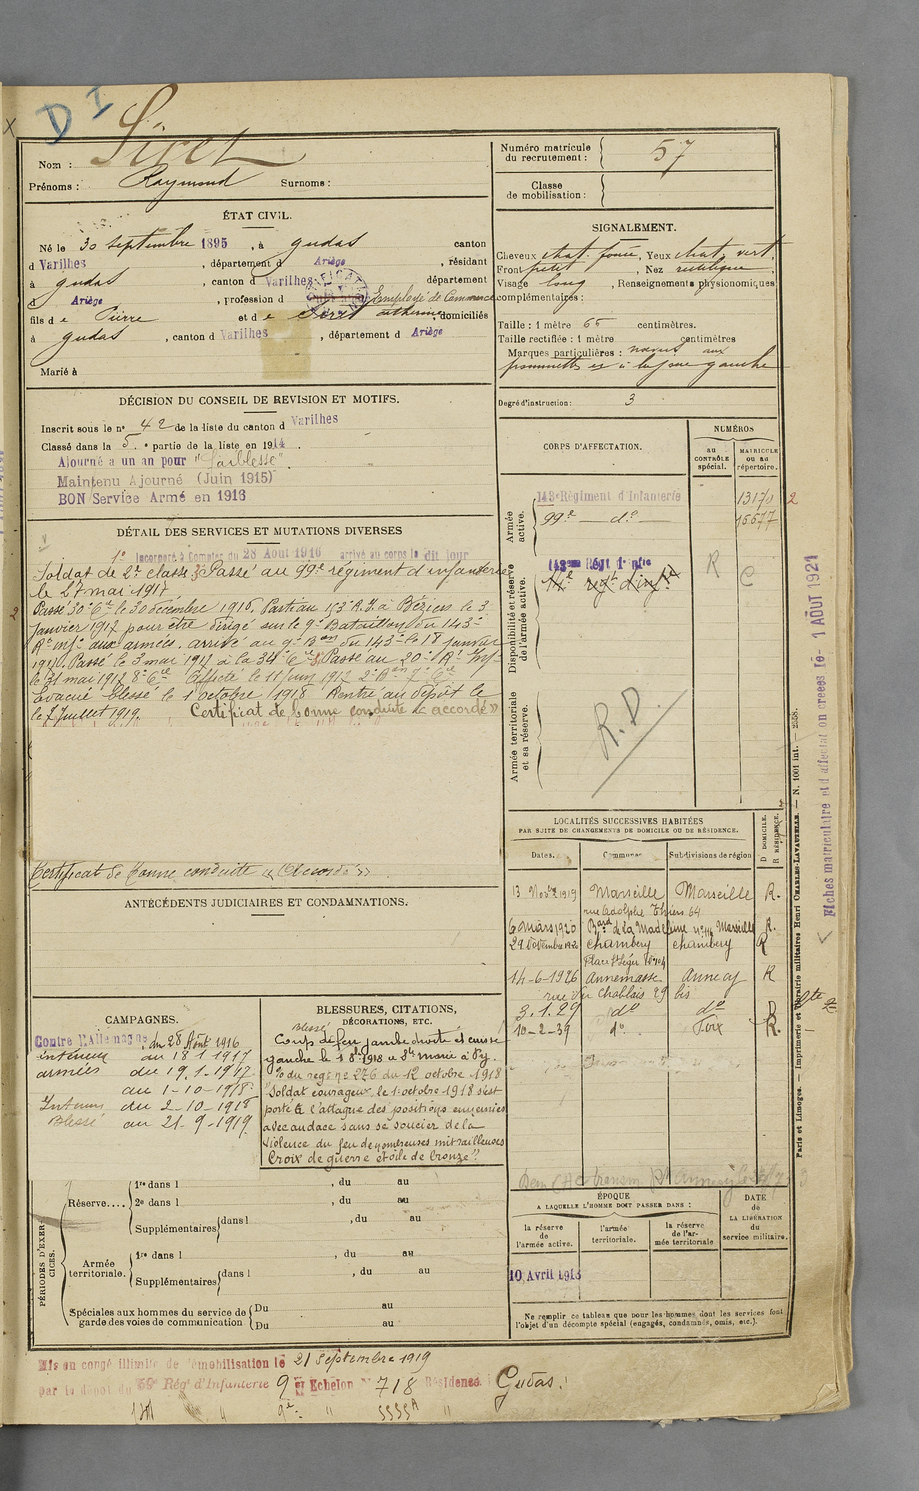 D I
Nom : Siret
Prénoms : Raymond Surnoms :
Numéro matricule du recrutement : 57
Classe de mobilisation :
ÉTAT CIVIL.
Né le 30 septembre 1895, à gudas canton
d Varilhes, département d Ariège, résidant
à gudas, canton d Varilhes département
d Ariège, profession d Employé de Commerce
fils d e Pierre et d e Siret Catherine, domiciliés
à gudas, canton d Varilhes, département d Ariège
Marié à
DÉCISION DU CONSEIL DE REVISION ET MOTIFS.
Inscrit sous le n° 42 de la liste du canton d Varilhes
Classé dans la 5e partie de la liste en 1914
Ajourné a un an pour "faiblesse".
Maintenu Ajourné (Juin 1915)
BON Service Armé en 1916
DÉTAIL DES SERVICES ET MUTATIONS DIVERSES
1° Incorporé à Compter du 28 Aout 1916 arrivé au corps le dit jour
Soldat de 2e classe Passé au 99e régiment d'infanterie
le 27 mai 1917
Passé 30e Cie le 30 décembre 1916. Parti au 143 R.I. à Béziers le 3
Janvier 1917 pour être dirigé sur le 9e Bataillon du 143e
Rt Infie aux armées. arrivé au 9e Bon du 143e le 18 Janvier
1917. Passé le 3 mai 1917 à la 34e Cie Passé au 20e Rt Inf
le 31 mai 1917 8e Cie Affecté le 11 Juin 1917 2e Bon 7e Cie
Evacué blessé le 1 octobre 1918 Rentré au dépôt le
le 7 Juillet 1919. Certificat de bonne conduite "accordé"
Certificat de bonne conduite "Accordé"
ANTÉCÉDENTS JUDICIAIRES ET CONDAMNATIONS.
CAMPAGNES.
Contre l'Allemagne, du 28 Août 1916
intérieur au 18 1 1917
armées du 19.1.1917
au 1-10-1918
Intérieur du 2-10-1918
Blessé au 21-9-1919
BLESSURES, CITATIONS, DÉCORATIONS, ETC.
blessé
Coup de feu jambe droite et cuisse
gauche le 1 8bre 1918 à Ste Marie à Py.
O du regt n° 276 du 12 octobre 1918
"Soldat courageux le 1 octobre 1918 s'est
porté à l'attaque des positions ennemies
avec audace sans se soucier de la
violence du feu de nombreuses mitrailleuses
Croix de guerre étoile de bronze".
PÉRIODES D'EXERCICES.
Réserve....
1re dans l , du au
2e dans l , du au
Supplémentaires dans l , du au
Armée territoriale.
1re dans l , du au
Supplémentaires dans l , du au
Spéciales aux hommes du service de garde des voies de communication
Du au
Du au
SIGNALEMENT.
Cheveux chat. foncé, Yeux chat. vert,
Front petit, Nez rectiligne,
Visage long, Renseignements physionomiques
complémentaires :
Taille : 1 mètre 65 centimètres.
Taille rectifiée : 1 mètre centimètres
Marques particulières : nœvus aux
pommettes et à la joue gauche
Degré d'instruction : 3
CORPS D'AFFECTATION.
NUMÉROS
au CONTRÔLE spécial.
MATRICULE ou au répertoire.
Armée active.
143e Régiment d'Infanterie 13170
99e — do — 15577
Disponibilité et réserve de l'armée active.
143eme Régt d'Infie R C
14e regt d'inf.
Armée territoriale et sa réserve.
R.D.
LOCALITÉS SUCCESSIVES HABITÉES
PAR SUITE DE CHANGEMENTS DE DOMICILE OU DE RÉSIDENCE.
Dates. Communes Subdivisions de région D DOMICILE. R RÉSIDENCE.
13 Novbre 1919 Marseille Marseille R.
rue Adolphe Thiers 64
6 mars 1920 Bard de la Madeleine n° 114 Marseille R.
29 Décembre 1920 Chambéry Chambéry R
Place St Léger
14-6-1926 Annemasse Annecy R
rue du Chablais 29 bis
3.1.29 do do D
10-2-39 do Foix R.
ÉPOQUE
A LAQUELLE L'HOMME DOIT PASSER DANS :
la réserve de l'armée active.
l'armée territoriale.
la réserve de l'armée territoriale
DATE de LA LIBÉRATION du service militaire.
10 Avril 1918
Ne remplir ce tableau que pour les hommes dont les services font
l'objet d'un décompte spécial (engagés, condamnés, omis, etc.).
Mis en congé illimité de démobilisation le 21 septembre 1919
par le dépôt du 59e Rég' d'Infanterie 9e Echelon N° 718 Résidence : Gudas.
Paris et Limoges. — Imprimerie et librairie militaires Henri CHARLES-LAVAUZELLE. — N. 1001 int. — 2358.
Fiches matriculaire et d'affectation créées le 1 AOUT 1921